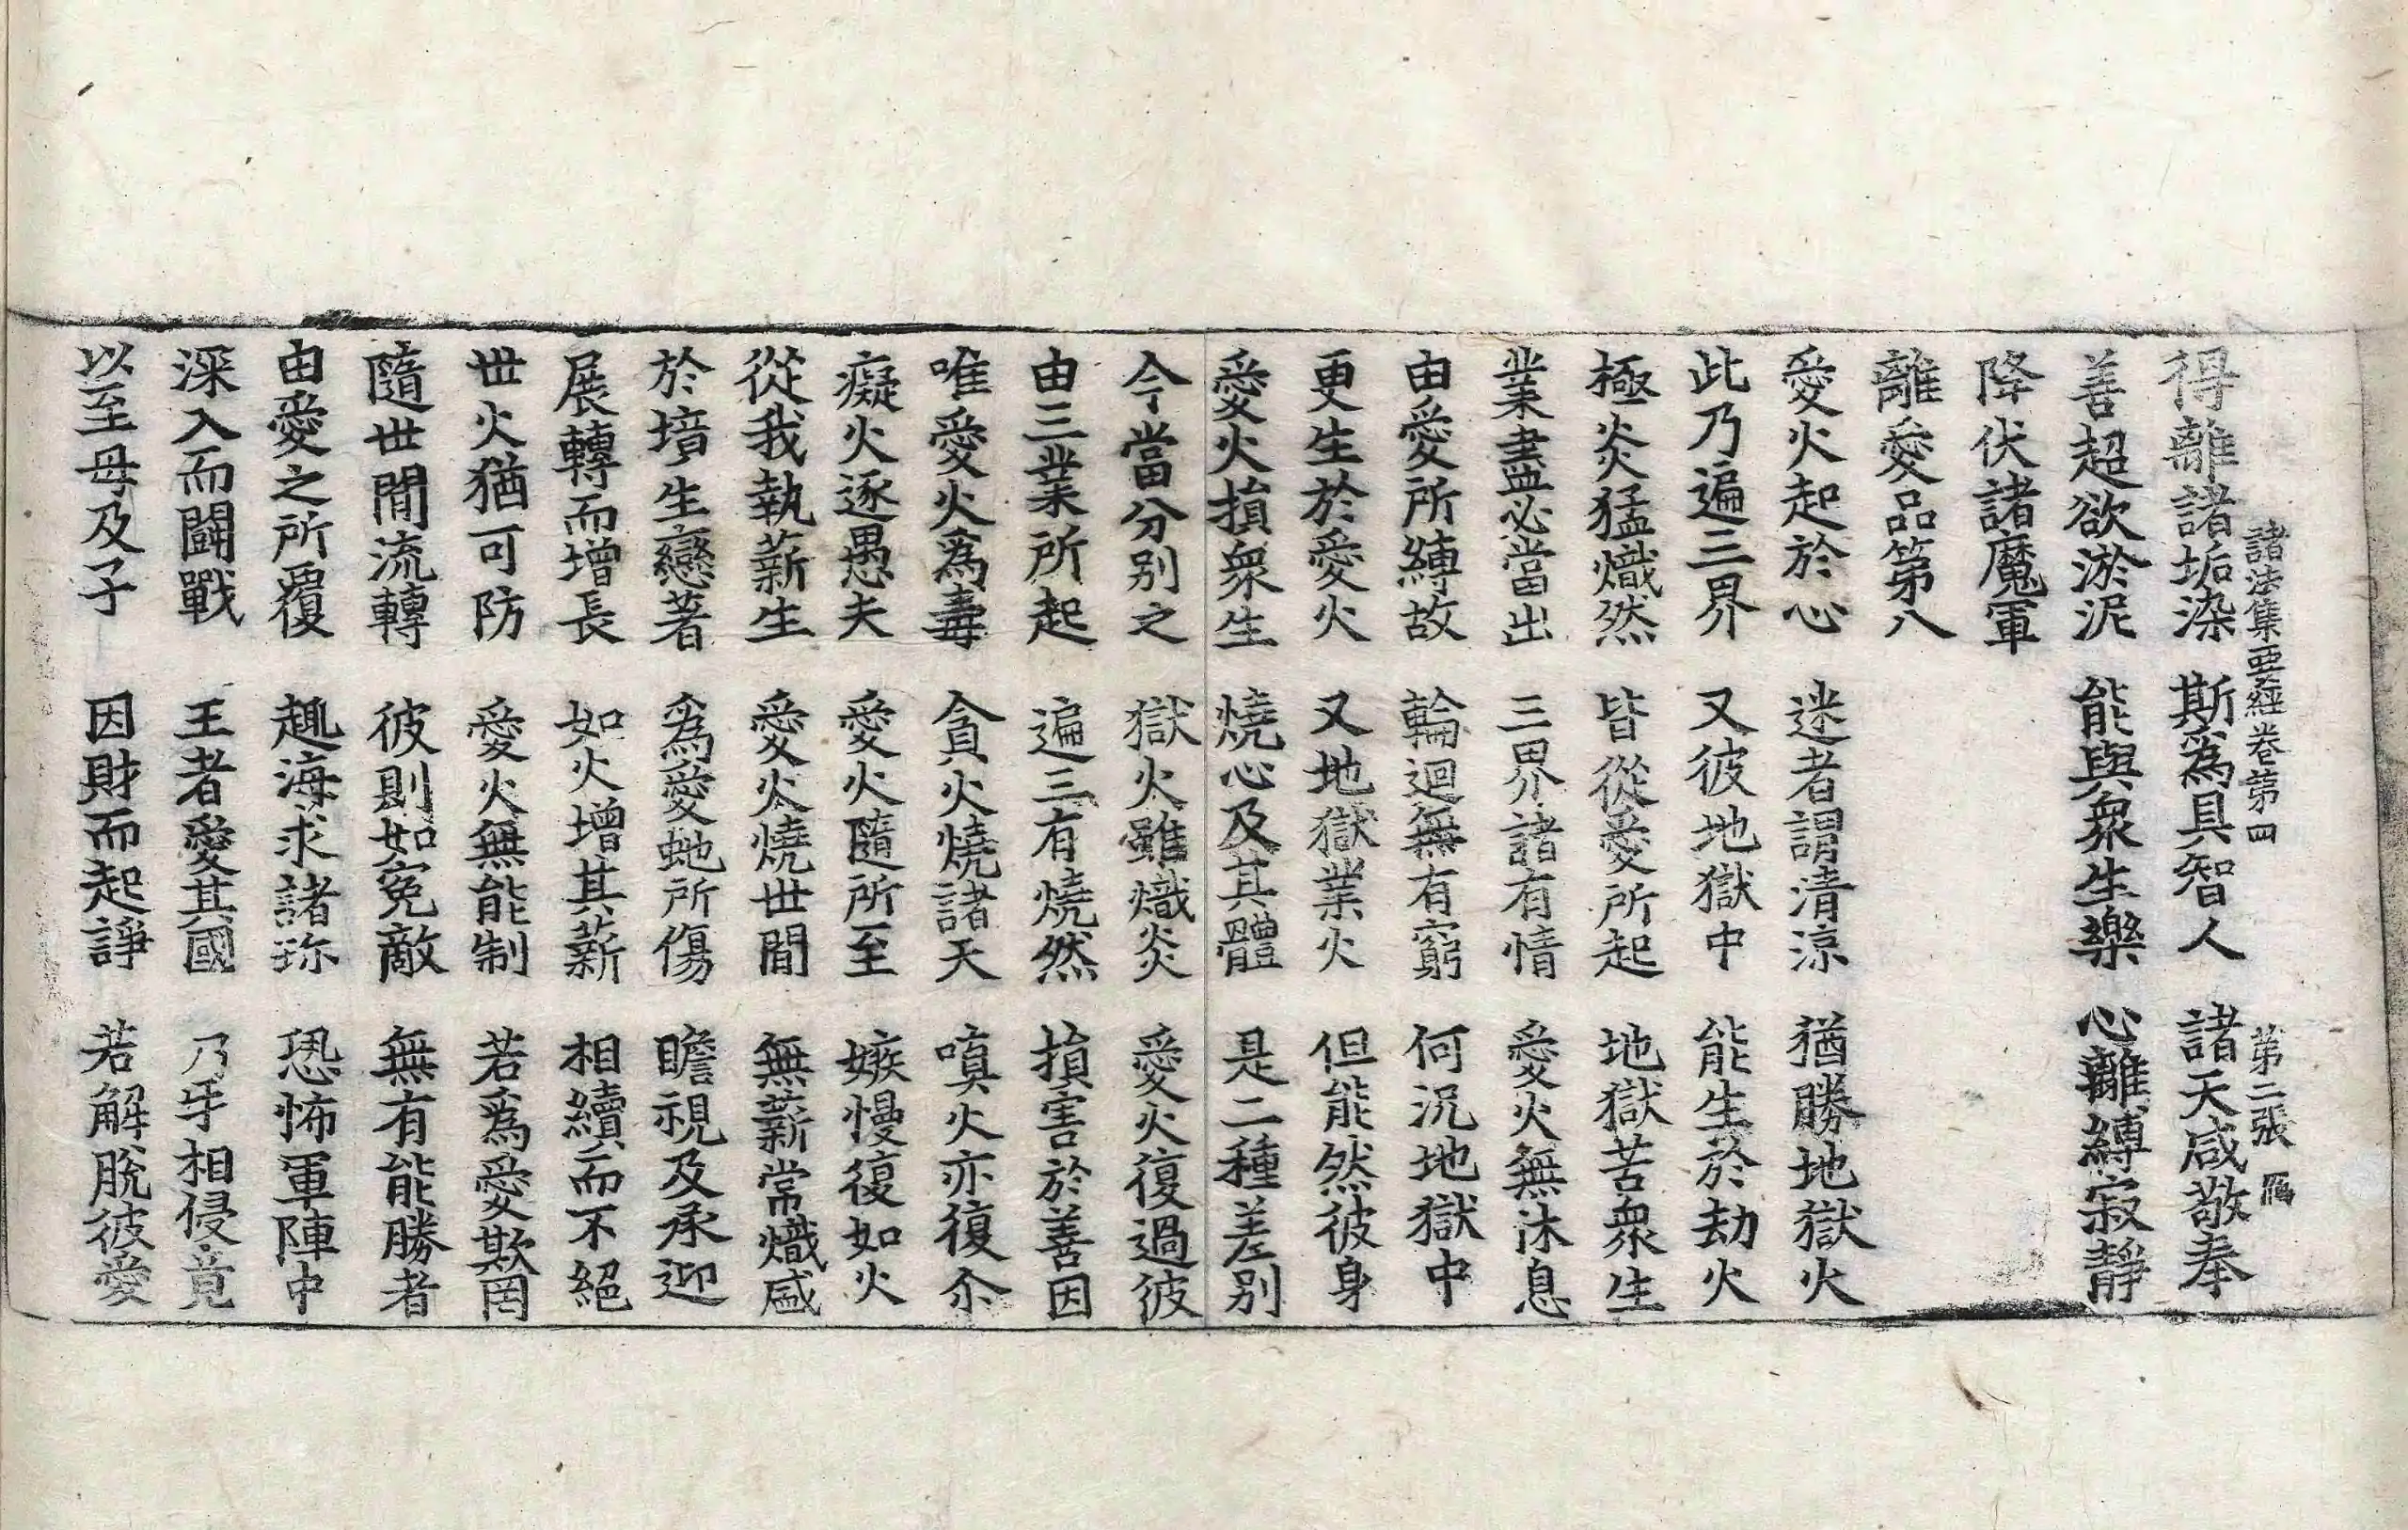 諸法集要經卷第四　第二張　鴈
得離諸垢染　斯爲具智人　諸天咸敬奉
善超欲淤泥　能與衆生樂　心離縛寂靜
降伏諸魔軍
離愛品第八
愛火起於心　迷者謂清涼　猶勝地獄火
此乃遍三界　又彼地獄中　能生於劫火
極炎猛熾然　皆從愛所起　地獄苦衆生
業盡必當出　三界諸有情　愛火無休息
由愛所縛故　輪迴無有窮　何況地獄中
更生於愛火　又地獄業火　但能然彼身
愛火損衆生　燒心及其體　是二種差别
今當分别之　獄火雖熾炎　愛火復過彼
由三業所起　遍三有燒然　損害於善因
唯愛火爲毒　貪火燒諸天　嗔火亦復尒
癡火逐愚夫　愛火隨所至　嫉慢復如火
從我執薪生　愛火燒世間　無薪常熾盛
於境生戀著　爲愛虵所傷　瞻視及承迎
展轉而增長　如火增其薪　相續而不絕
世火猶可防　愛火無能制　若爲愛欺罔
隨世間流轉　彼則如冤敵　無有能勝者
由愛之所覆　趣海求諸珎　恐怖軍陣中
深入而鬪戰　王者愛其國　乃𤓰相侵竟
以至母及子　因財而起諍　若解脫彼愛